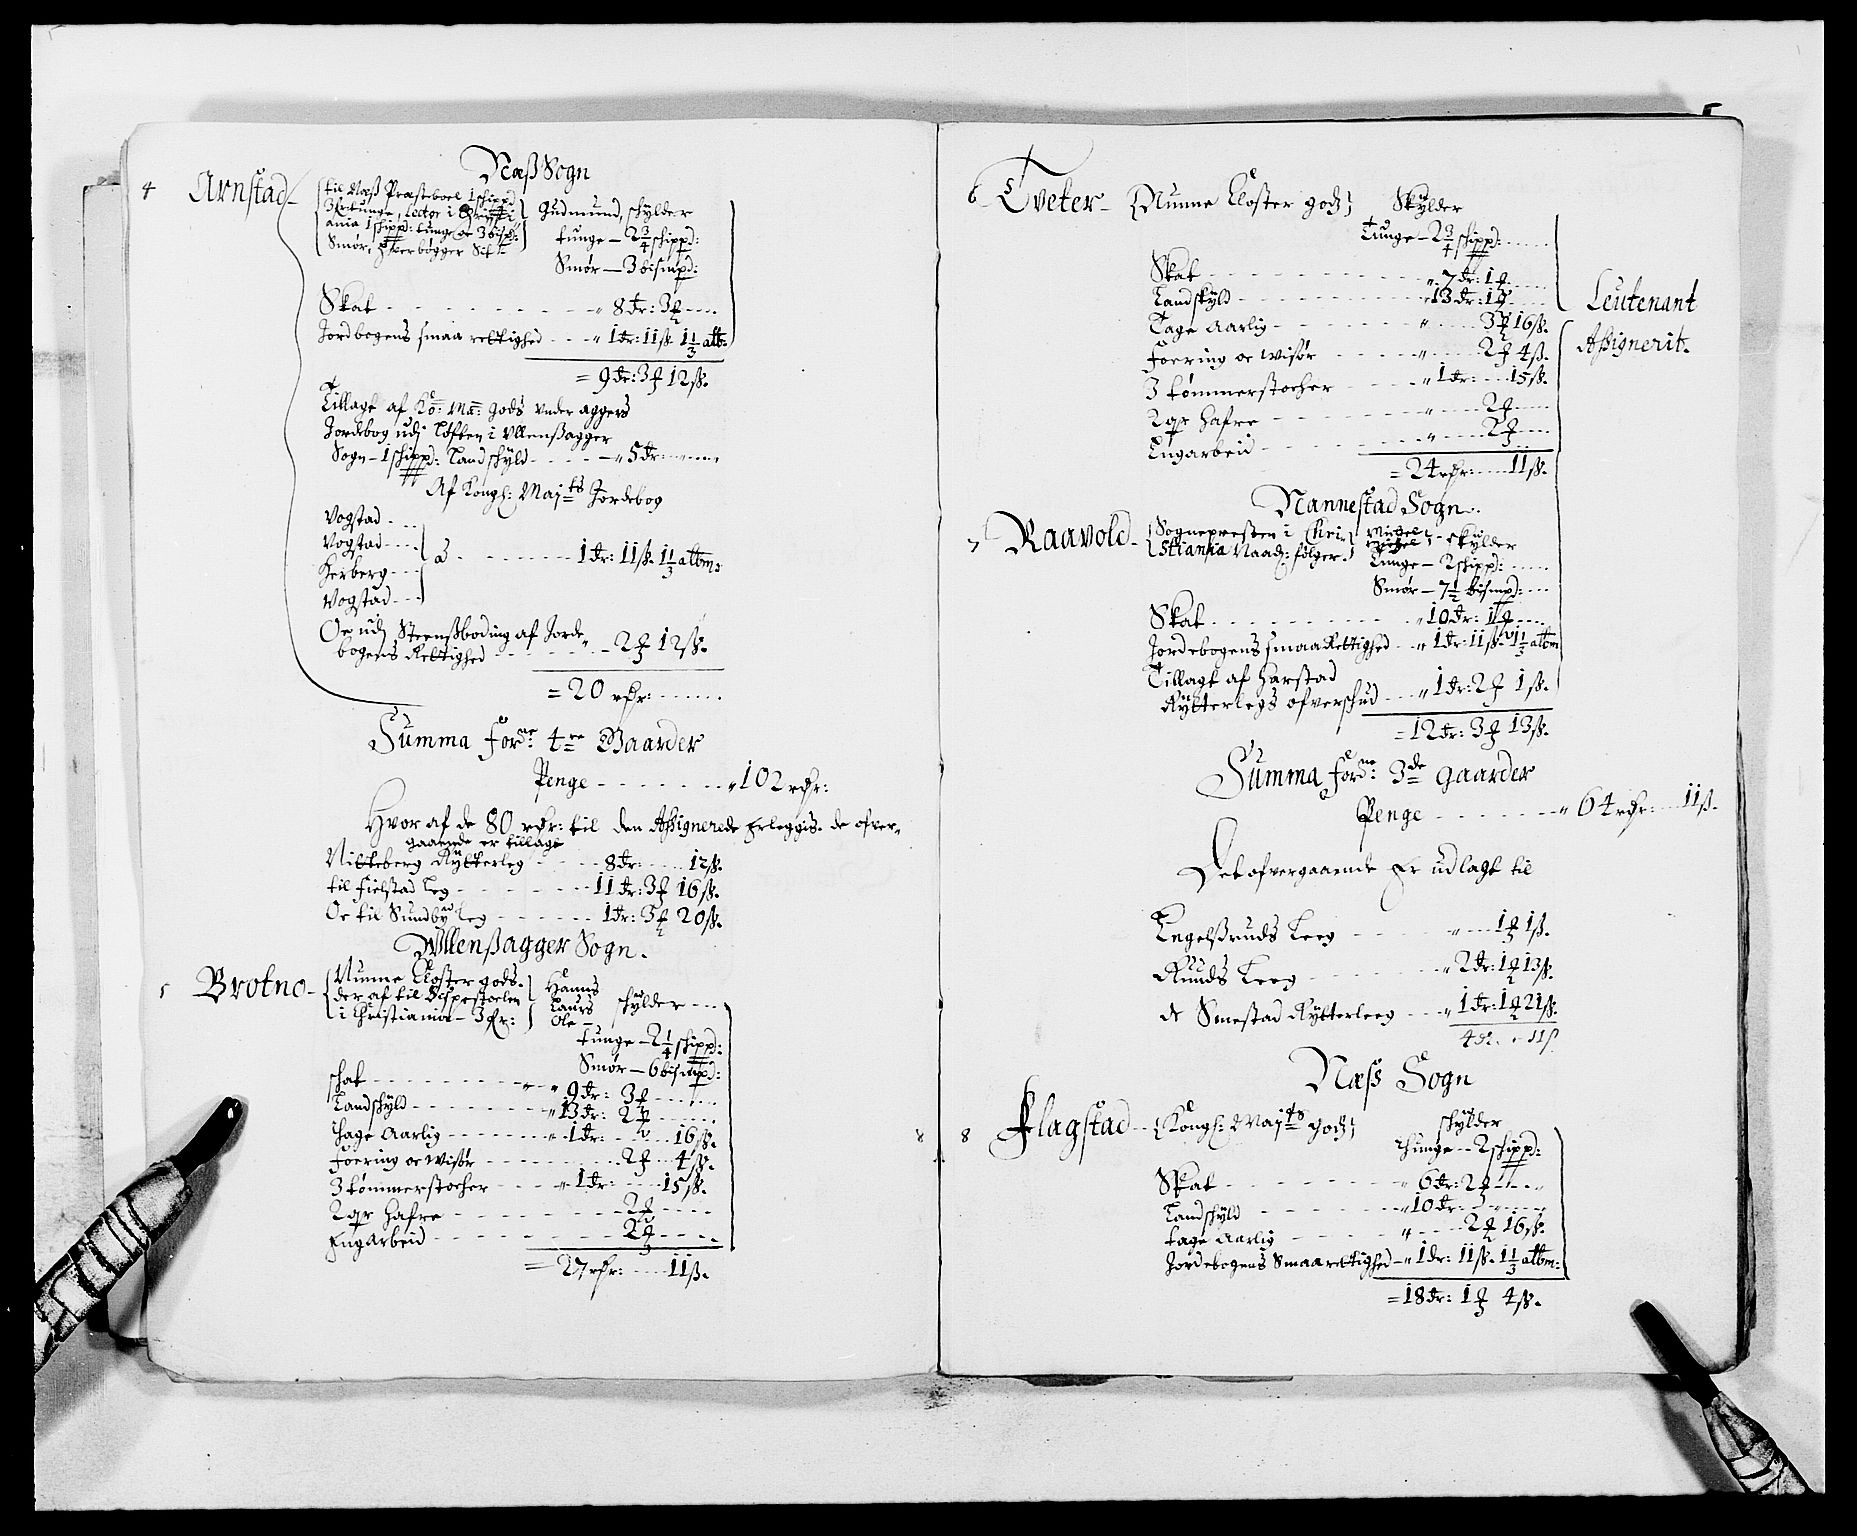 Næss Sogn
4 Arnstad
til Næss Præstboel 1 schippd
3 tunge, Lector i Christi
ania 1 schippd: tunge oc 3 bispd:
Smør,
Gudmund, schylder
tunge - 2 3/4 schippd:
Smør - 3 bismpd:
Skat - 8 dr: 3
Jordbogens smaa rettighed - 1 dr: 11 ss. 1 1/3 alb.
= 9 dr: 3 12 ss.
Tillagt af Ko: Ma: gods under aggers
Jordebog udj Toften i Ullenssagger
Sogn - 1 schippd: Landschyld - 5 dr:
Af Kongl: Maj ts Jordebog
Vogstad
Vogstad
Herberg
Vogstad
1 dr: 11 ss. 1 1/3 albm:
Oc udj Steenssboding af Jorde
bogens Rettighed - 2 12 ss.
= 20 rdr:
Summa forne 4re Gaarder
Penge - 102 rdr:
Hvor af de 80 rdr: til den Assignerede Erleggis. de ofver-
gaaende er tillagt
Nitteberg Rytterleg - 8 dr: 12 ss.
til Fielstad Leg - 11 dr: 3 16 ss.
Oc til Sundby Leg - 1 dr: 3 20 ss.
Ullenssagger Sogn.
5 Brotno
Nunne Closter gods.
der af til Bispestoelen
i Christiania - 3
Hanns
Laurs
Ole
schylder
tunge - 2 1/4 schippd:
Smør - 6 bismpd:
schat - 9 dr: 3
Landschyld - 13 dr: 2
Thage Aarlig - 1 dr: 16 ss.
Foering oc Wisør - 2 4 ss.
3 tømmerstocher - 1 dr: 15 ss.
2 qr Hafre - 2
Engarbeid - 2
= 27 rdr: 11 ss.
6 Tveter - Nunne Closter gods Skylder
Tunge - 2 3/4 schippd:
Skat - 7 dr: 1
Landskyld - 13 dr: 1
Tage Aarlig - 3 16 ss.
Foering oc Wisør - 2 4 ss.
3 tømmerstocher - 1 dr: 15 ss.
2 qr Hafre - 2
Engarbeid - 2
= 24 rdr: 11 ss.
Leutenant
Assignerit.
Nannestad Sogn.
7 Raavold
Sognepresten i Chri
stiania Naads: følger.
Michel
skylder
Tunge - 2 schippd:
Smør - 7 1/2 bismpd:
Skat - 10 dr: 1
Jordebogens smaa Rettighed - 1 dr: 11 ss. 1 1/3 albm
Tillagt af Harstad
Rytterlegs ofverschud - 1 dr: 2 1 ss.
= 12 dr: 3 13 ss.
Summa forne 3de gaarder
Penge - 64 rdr: 11 ss.
Det ofvergaaende Er udlagt til
Engelssruds Leeg - 1 1 ss.
Ruuds Leeg - 2 dr: 1 13 ss.
Smestad Rytterleeg - 1 dr: 1 21 ss.
Næss Sogn
8 8 Flagstad - Kongl: Maj ts gods schylder
Thunge - 2 schippd:
Skat - 6 dr: 2
Landschyld - 10 dr:
tage Aarlig - 2 16 ss.
Jordebogens Smaa rettighed - 1 dr: 11 ss. 1 1/3 albm:
= 18 dr: 1 4 ss.